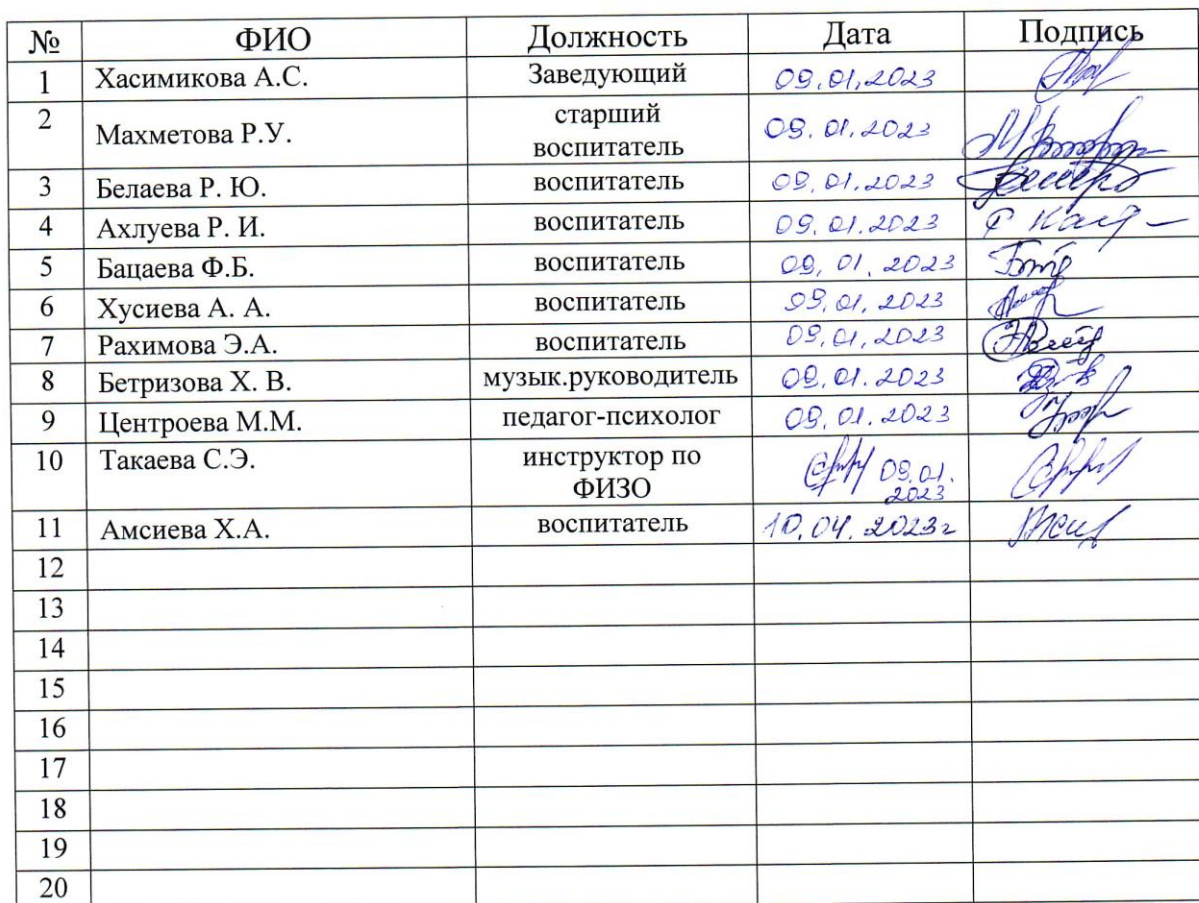 № ФИО Должность Дата Подпись
1 Хасимикова А.С. Заведующий 09.01.2023
2 Махметова Р.У. старший воспитатель 09.01.2023
3 Белаева Р. Ю. воспитатель 09.01.2023
4 Ахлуева Р. И. воспитатель 09.01.2023
5 Бацаева Ф.Б. воспитатель 09.01.2023
6 Хусиева А. А. воспитатель 09.01.2023
7 Рахимова Э.А. воспитатель 09.01.2023
8 Бетризова Х. В. музык.руководитель 09.01.2023
9 Центроева М.М. педагог-психолог 09.01.2023
10 Такаева С.Э. инструктор по ФИЗО 09.01.2023
11 Амсиева Х.А. воспитатель 10.04.2023г
12
13
14
15
16
17
18
19
20